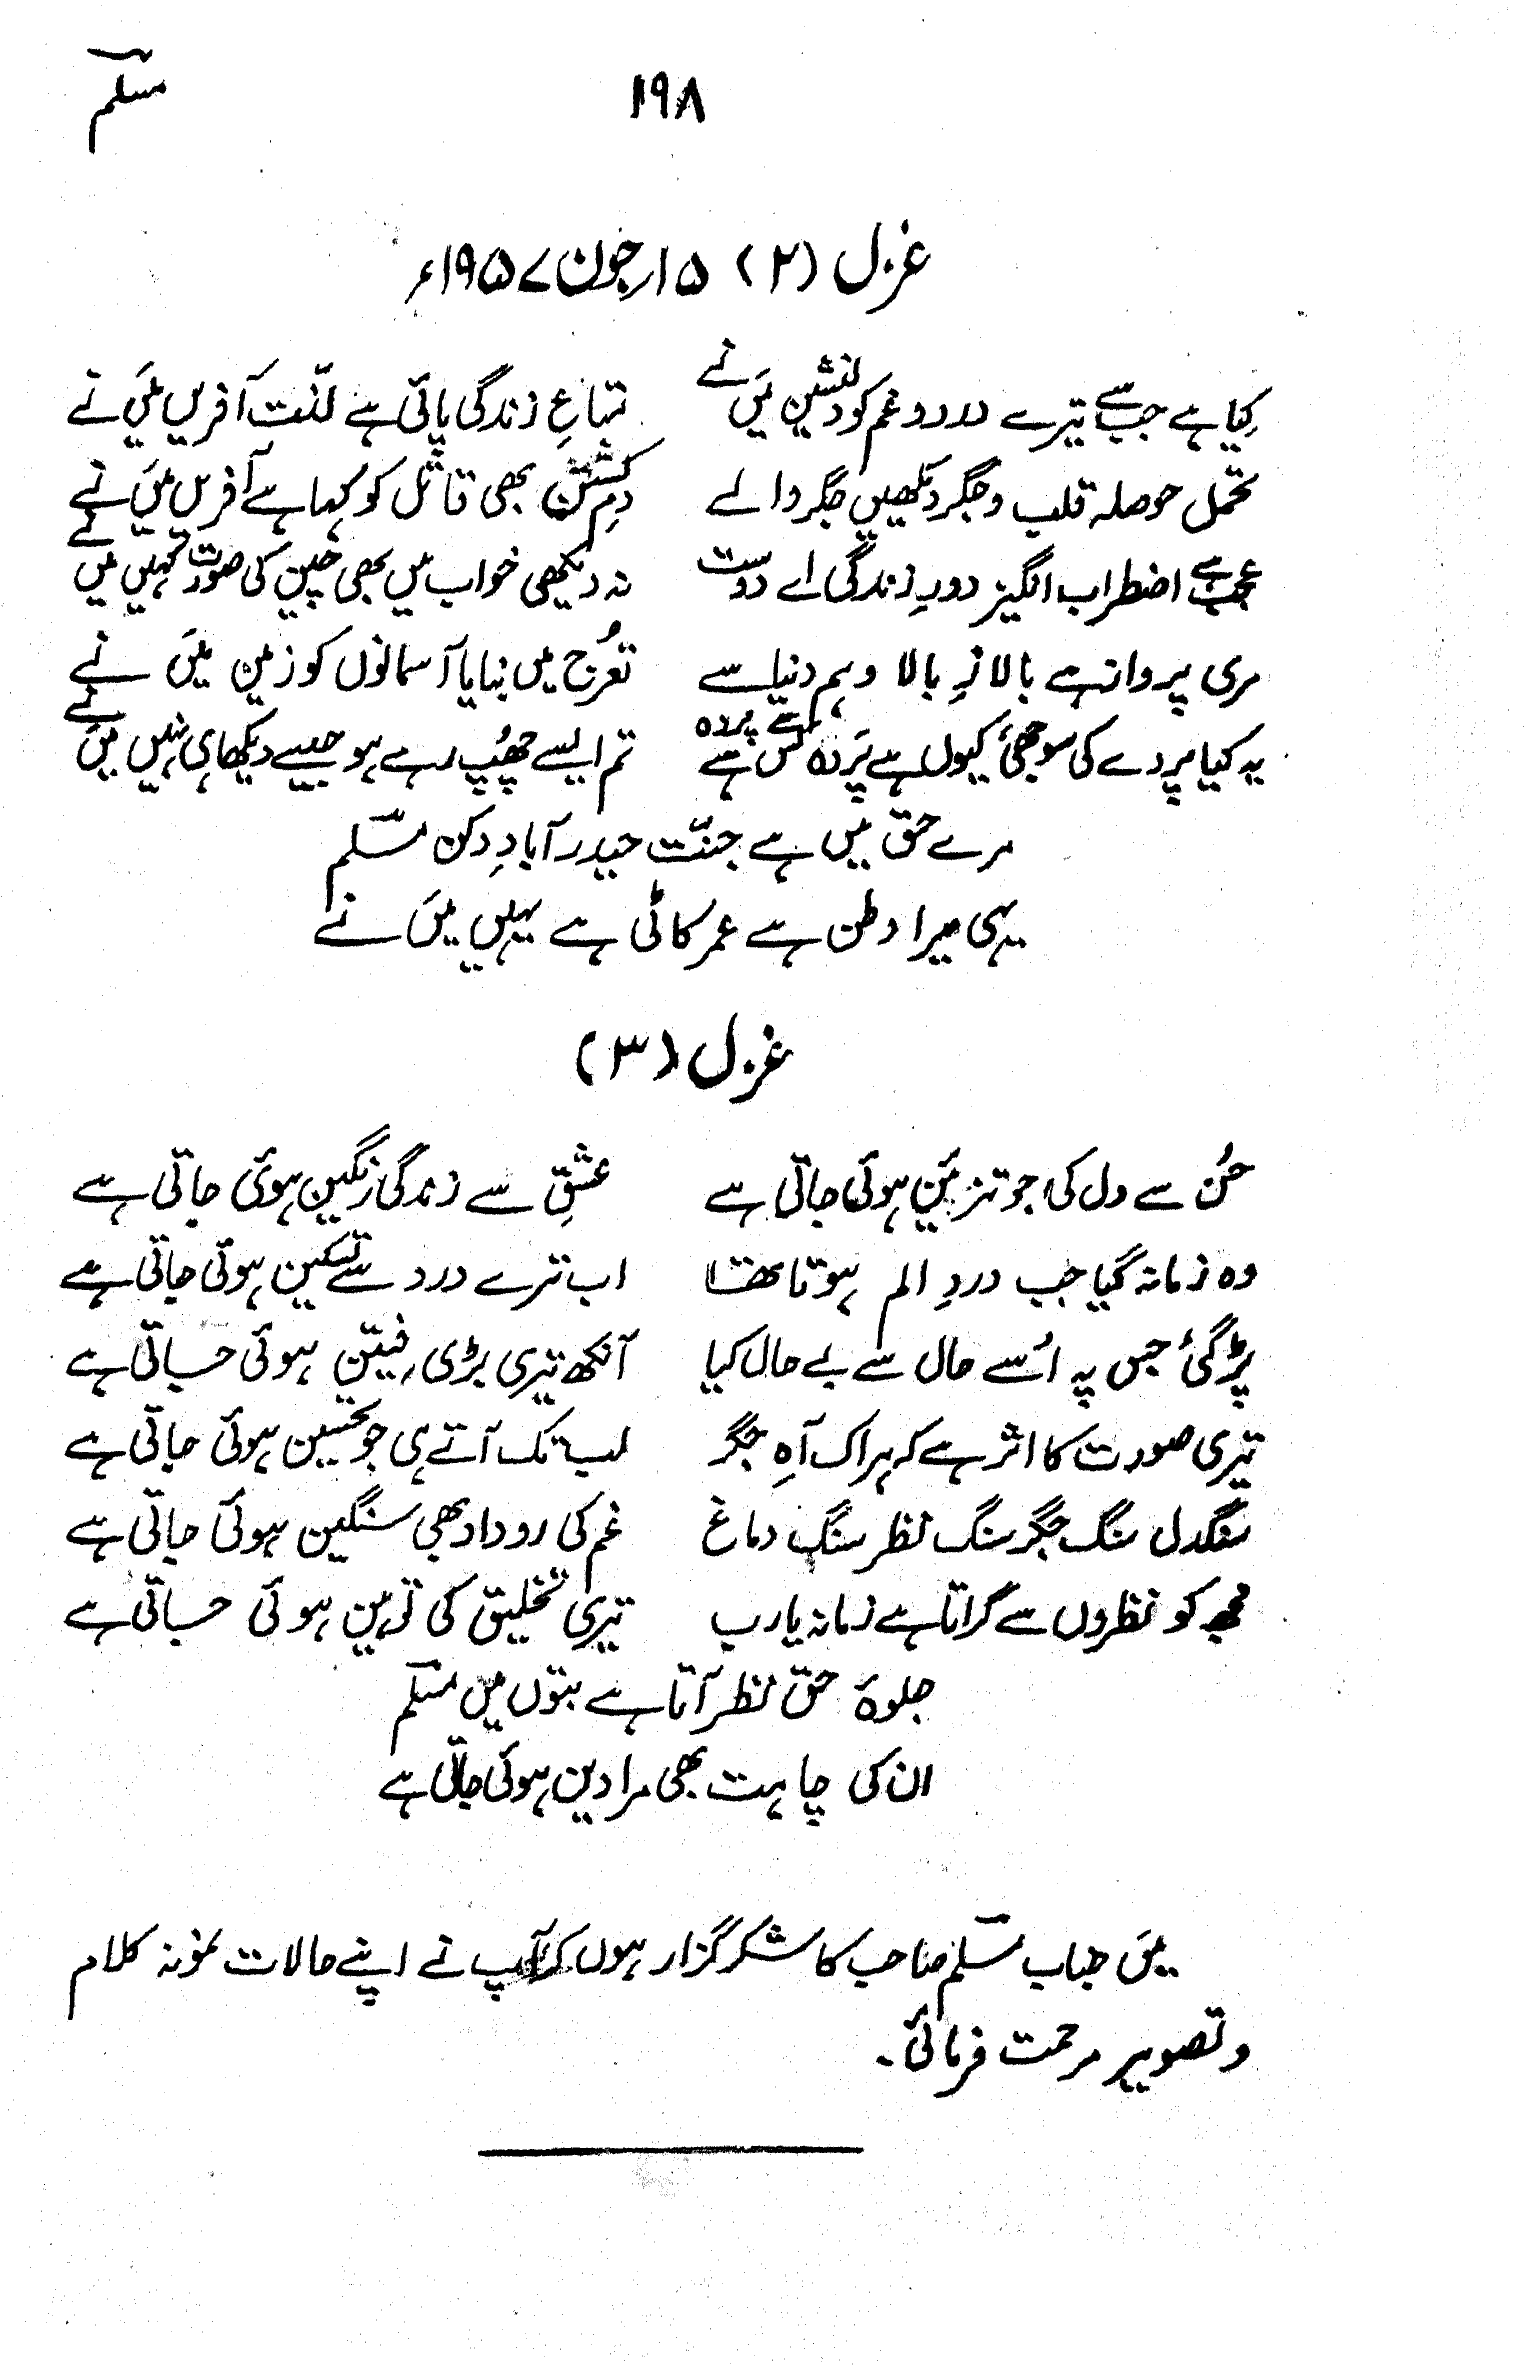 ۱۹۸
مسلم
غزل (۲) ۱۵ر جون ۱۹۵۷ء
کیا ہے جب سے تیرے درد و غم کو دلنشین میں نے متاعِ زندگی پائی ہے لذّت آفریں میں نے
تحمل حوصلہ قلب و جگر دیکھیں جگر والے دمِ کشتن بھی قاتل کو کہا ہے آفریں میں نے
عجب ہے اضطراب انگیز دورِ زندگی اے دوست نہ دیکھی خواب میں بھی چین کی صورت کہیں میں نے
مری پرواز ہے بالا نہِ بالا وہم دنیا سے تعرُج میں بنایا آسمانوں کو زمین میں نے
یہ کیا پردے کی سوجھی کیوں ہے پردہ کس سے پردہ ہے تم ایسے چھُپ رہے ہو جیسے دیکھا ہی نہیں میں نے
مرے حق میں ہے جنّت حیدرآبادِ دکن مسلم
یہی میرا وطن ہے عمر کاٹی ہے یہیں میں نے
غزل (۳)
حُسن سے دل کی جو تزئین ہوئی جاتی ہے عشقِ سے زندگی رنگین ہوئی جاتی ہے
وہ زمانہ گیا جب دردِ الم ہوتا تھا اب ترے درد سے تسکین ہوئی جاتی ہے
پڑ گئی جس پہ اُسے حال سے بے حال کیا آنکھ تیری بڑی فیتن ہوئی جاتی ہے
تیری صورت کا اثر ہے کہ ہر اک آہِ جگر لب تک آتے ہی جو تحسین ہوئی جاتی ہے
سنگدل سنگ جگر سنگ نظر سنگ دماغ غم کی روداد بھی سنگین ہوئی جاتی ہے
مجھ کو نظروں سے گراتا ہے زمانہ یا رب تیری تخلیق کی توہین ہوئی جاتی ہے
جلوہٴ حق نظر آتا ہے بتوں میں مسلم
ان کی چاہت بھی مرا دین ہوئی جاتی ہے
میں جناب مسلم صاحب کا شکر گزار ہوں کہ آپ نے اپنے حالات نمونہ کلام
و تصویر مرحمت فرمائی۔